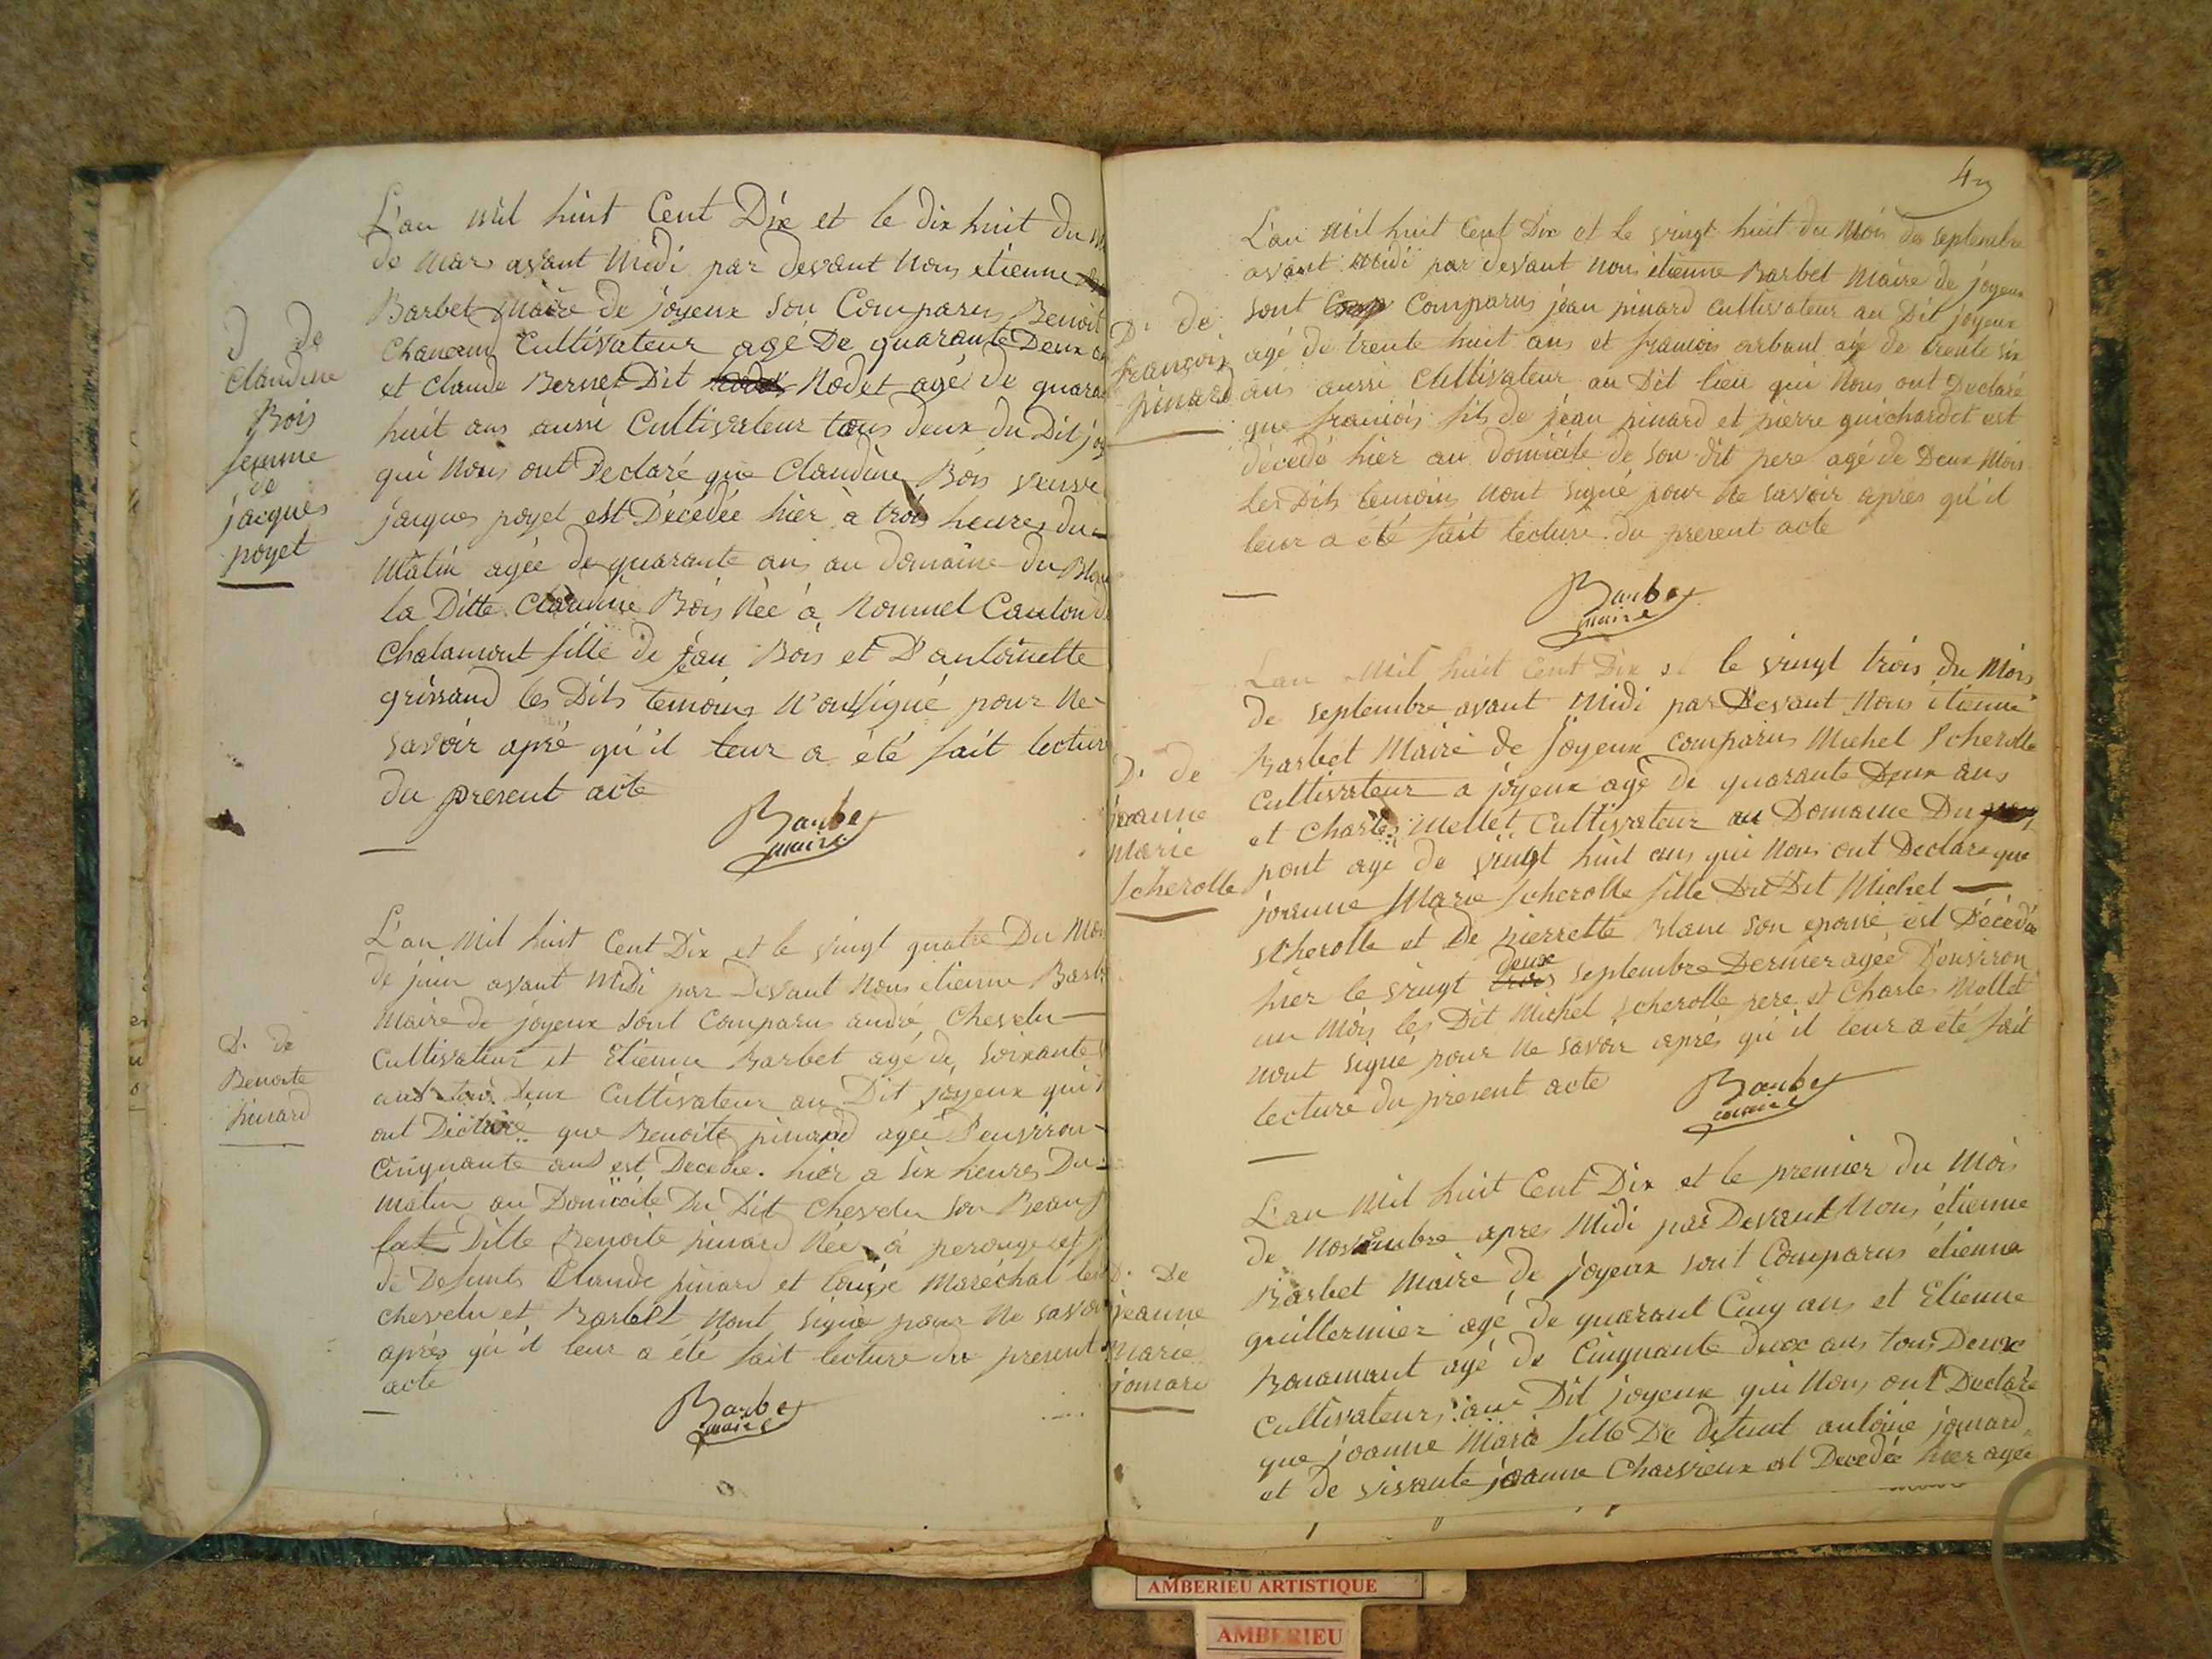 D de
Claudine
Bois
femme
de
jacques
poyet
L'an mil huit Cent Dix et le dix huit du
de Mars avant Midi par devant Nous etienne
Barbet Maire de joyeux son Comparus Benoit
Cultivateur agé De quarante Deux
et claude Bernet Dit Nodet agé de quara
huit ans aussi Cultivateur tous deux du Dit joy
qui Nous ont Declaré que Claudine Bois veuve
jacques poyet est Décédée hier à trois heures du
Matin agée de quarante ans au domaine du
la Ditte Claudine Bois Née à Canton de
Chalamont fille de jean Bois et D'antoinette
les Dits temoins N'ont signé pour Ne
savoir apré qu'il leur a été fait lectur
du present acte
Barbet
maire
D. de
Benoite
pinard
L'an Mil huit Cent Dix et le vingt quatre Du Moi
de juin avant Midi par Devant Nous etienne Barbe
Maire de joyeux sont Comparus andré Chevelu
Cultivateur et Etienne Barbet agé de soixante
ans tous Deux Cultivateur au Dit joyeux qui
ont Declaré que Benoite pinard agée D'environ
Cinquante ans est Decedée hier a six heures Du
matin au Domicile Du Dit Chevelu son Beau
Ditte Benoite pinard Née à perouge et
de Defunts Claude pinard et Louise Maréchal les
Chevelu et Barbet Nont signé pour Ne savoir
après qu'il leur a été fait lecture du present
acte
Barbet
maire
D. de
françois
pinard
L'an Mil huit Cent Dix et le vingt huit du Mois de septembre
avant Midi par devant Nous etienne Barbet Maire de joyeux
sont Comparus jean pinard Cultivateur au Dit joyeux
agé de trente huit ans et francois arbant agé de trente six
ans aussi Cultivateur au Dit lieu qui Nous ont Declaré
que francois fils de jean pinard et pierre guichardet est
décédé hier au domicile de son dit pere agé de Deux Mois
Les Dits temoins Nont signé pour Ne savoir apres qu'il
leur a été fait lecture du present acte
Barbet
maire
D. de
jeanne
Marie
scherolle
L'an Mil huit Cent Dix et le vingt trois du Mois
de septembre avant Midi par Devant Nous etienne
Barbet Maire de Joyeux Comparus Michel Scherolle
Cultivateur a joyeux agé de quarante Deux ans
et Charles Mellet Cultivateur au Domaine Du
pont agé de vingt huit ans qui Nous ont Declare que
joanne Marie scherolle fille Du Dit Michel
scherolle et De pierrette Blanc son epouse est Décédée
deux
hier le vingt trois septembre Dernier agée D'environ
un Mois les Dit Michel scherolle pere et Charles Mellet
nont signé pour Ne savoir après qu'il leur a été fait
lecture du present acte
Barbet
maire
D. De
jeanne
Marie
jomard
L'an Mil huit Cent Dix et le premier du Mois
de Novembre apres Midi par Devant Nous étienne
Barbet Maire de joyeux sont Comparus étienne
guillermier agé de quarant Cinq ans et Etienne
Bonamant agé de Cinquante deux ans tous Deux
Cultivateurs au Dit joyeux qui Nous ont Declaré
que joanne Marie fille De defunt antoine jomard
et de vivante joanne Charvieux est Decedée hier agée
AMBERIEU ARTISTIQUE
AMBERIEU